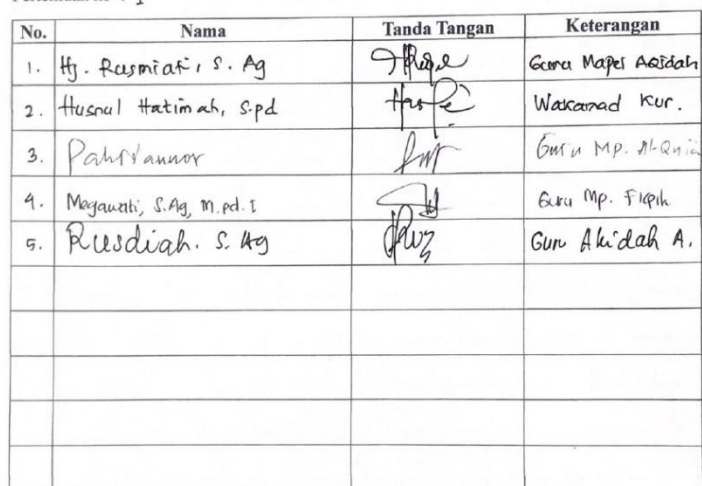 No. Nama Tanda Tangan Keterangan
1. Hj. Rusmiati, S. Ag Guru Mapel Aqidah
2. Husnul Hatimah, S.pd Wakamad Kur.
3. Pahriannor Guru MP. Al-Qur'a
4. Megawati, S.Ag, M.pd.I Guru Mp. Fiqih
5. Rusdiah. S. Ag Guru Akidah A.